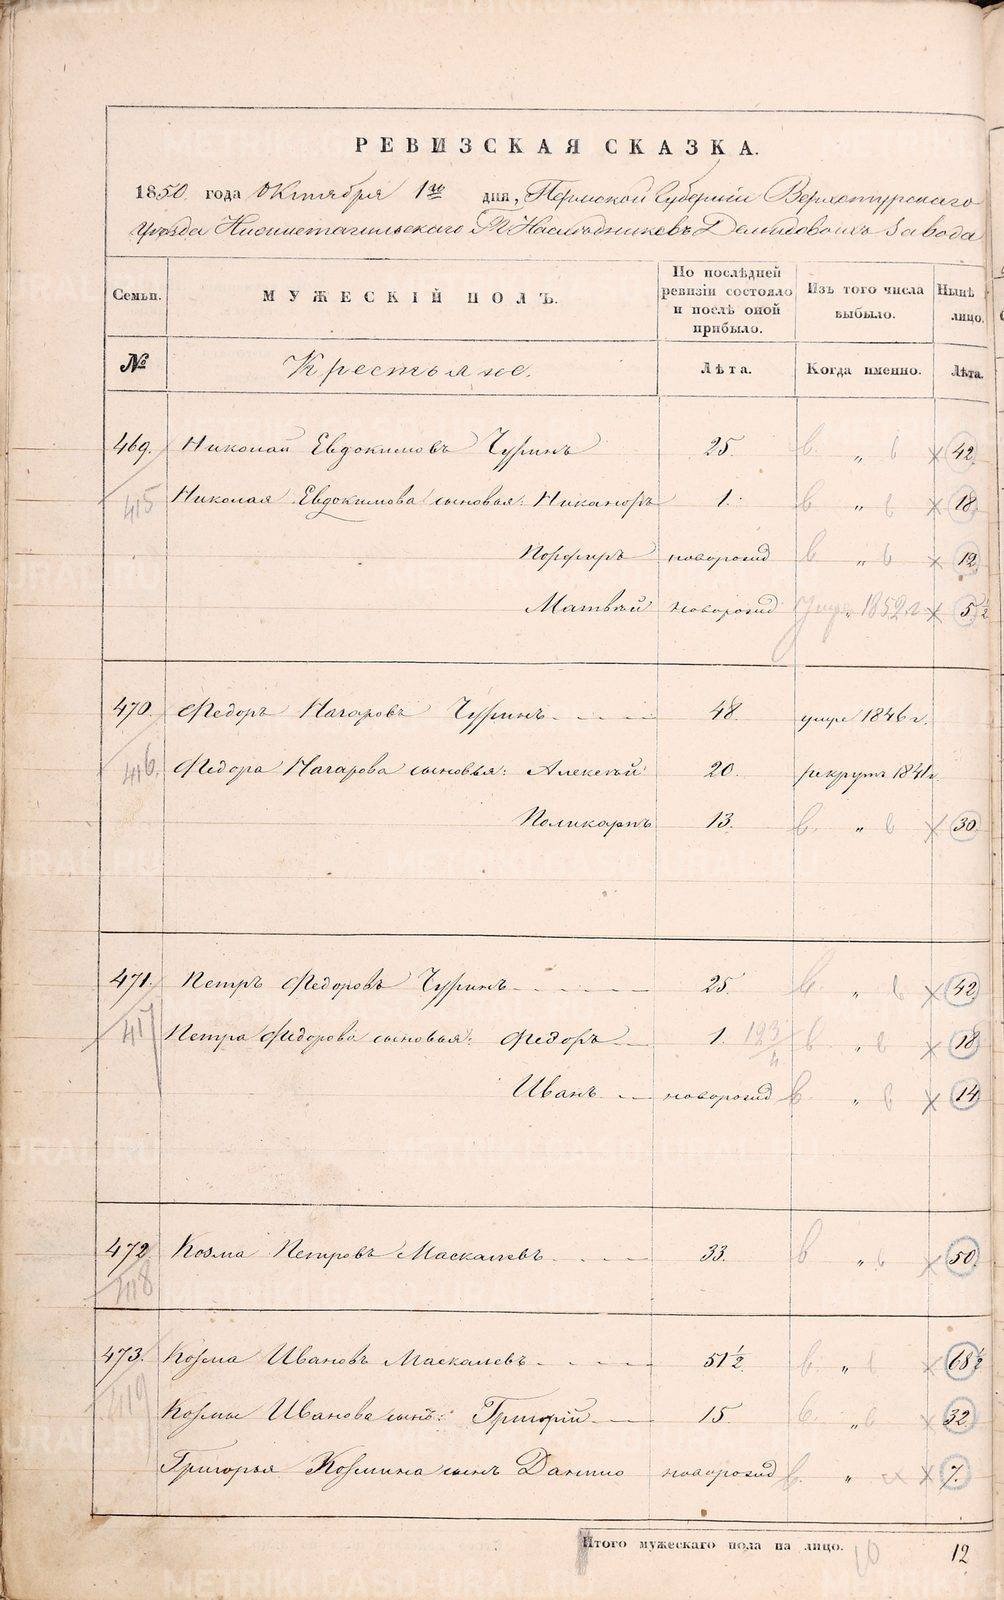 РЕВИЗСКАЯ СКАЗКА.
1850 года Октября 1го дня, Пермской Губерніи Верхотурскаго
уѣзда Нижнетагильскаго Наслѣдниковъ Демидовыхъ Завода
Семьи. МУЖЕСКІЙ ПОЛЪ. По послѣдней ревизіи состояло и послѣ оной прибыло. Изъ того числа выбыло. Нынѣ на лицо.
№ Крестьяне. Лѣта. Когда именно. Лѣта.
469. Николай Евдокимовъ Чуринъ 25. в „ в × 42
415 Николая Евдокимова сыновья: Никаноръ 1. в „ в × 18
Порфиръ новорожд в „ в × 12
Матвѣй новорожд умре „ 1852 г × 5½
470. Федоръ Назаровъ Чуринъ 48. умре 1846 г.
416. Федора Назарова сыновья: Алексѣй 20. рекрутъ 1841 г.
Поликарпъ 13. в „ в × 30
471. Петръ Федоровъ Чуринъ 25. в „ в × 42
417 Петра Федорова сыновья: Федоръ 1. 123/4 в „ в × 18
Иванъ новорожд в „ в × 14
472 Козма Петровъ Маскалевъ 33. в „ в × 50
418
473. Козма Ивановъ Маскалевъ 51½ в „ в × 68½
419 Козмы Иванова сынъ: Григорій 15. в „ в × 32
Григорья Козмина сынъ Данило новорожд в. „ × 7.
Итого мужескаго пола на лицо. 10 12